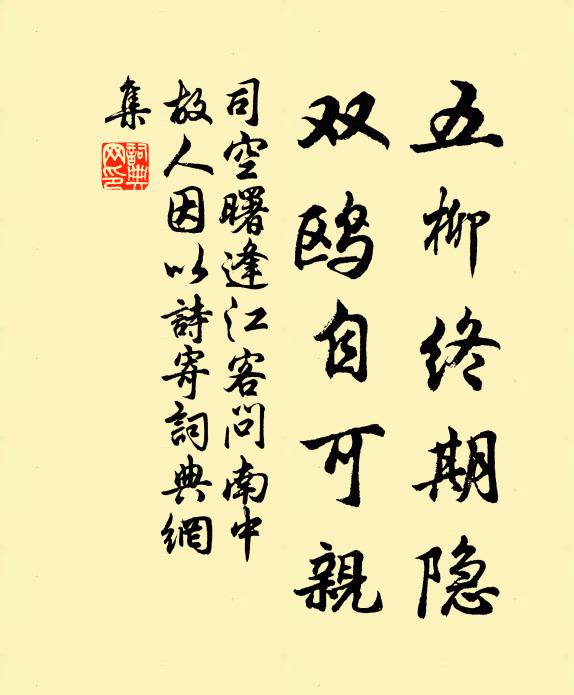 五柳终期隐
双鸥自可親
司空曙逢江客问南中
故人因以詩寄詞典網
集
詞典網印